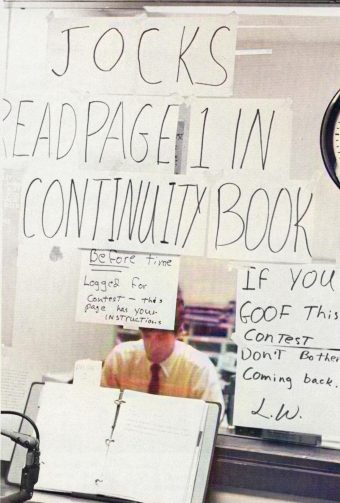 JOCKS
READ PAGE 1 IN
CONTINUITY BOOK
Before time
Logged for
Contest - this
page has your
INSTRUCTIONS
IF YOU
GOOF This
Contest
DON'T Bother
Coming back.
L.W.